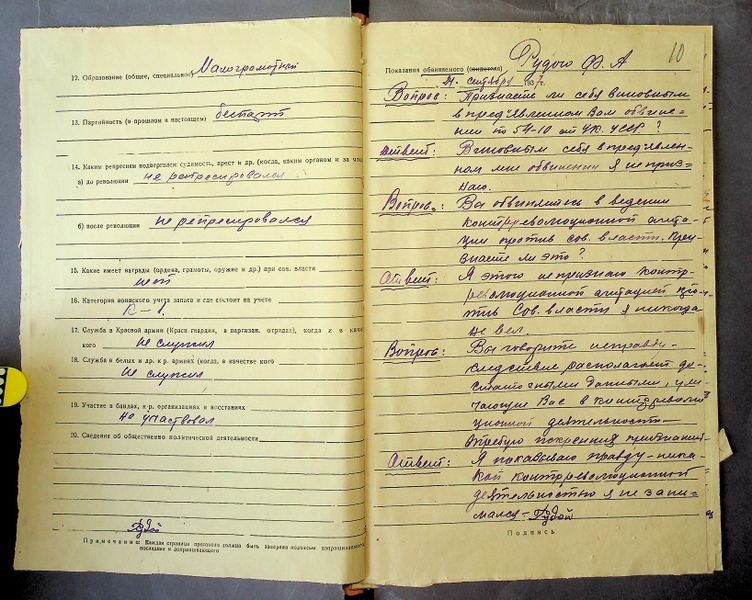 12. Образование (общее, специальное) Малограмотный
13. Партийность (в прошлом и настоящем) беспарт
14. Каким репрессиям подвергался: судимость, арест и др. (когда, каким органом и за что)
а) до революции не репресировался
б) после революции не репресировался
15. Какие имеет награды (ордена, грамоты, оружие и др.) при сов. власти
16. Категория воинского учета запаса и где состоит на учете
К-1.
17. Служба в Красной армии (Красн. гвардии, в партизан. отрядах), когда и в каче
кого не служил
18. Служба в белых и др. к-р. армиях (когда, в качестве кого
Не служил
19. Участие в бандах, к-р. организациях и восстаниях
не участвовал
20. Сведения об общественно политической деятельности
Рудой
Примечание: Каждая страница протокола должна быть заверена подписью допрашиваемого
последнее и допрашивающего
10
Показания обвиняемого (свидетеля) Рудого Ф. А
21 сентября 1937г.
Вопрос: Признаете ли себя виновным
в предъявленном Вам обвине-
нии по 54-10 ст УК УССР?
Ответ: Виновным себя в предъявлен-
ном мне обвинении я не приз-
наю.
Вопрос: Вы обвиняетесь в ведении
контрреволюционной агита-
ции против сов. власти. При-
знаете ли это?
Ответ: Я этого не признаю контр-
революционной агитацией про-
тив Сов. власти я никогда
не вел.
Вопрос: Вы говорите неправду-
следствие располагает до-
статочными данными, ули-
чающие Вас в контрреволю
ционной деятельности
требую искрения признания.
Ответ: Я показываю правду-ника-
кой контрреволюционной
деятельностью я не зани-
мался- Рудой
Подпись